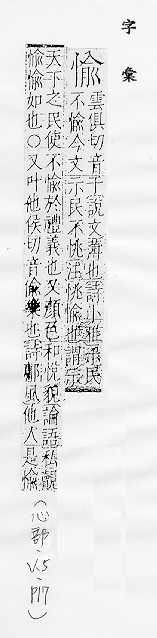 字彙
愉
雲俱切音于說文薄也詩小雅視民
不愉今文示民不恌注恌愉也謂示
天下之民使不愉於禮義也又顏色和悅貌論語私覿
愉愉如也○又叶他侯切音偷樂也詩唐風他人是愉
(心部、V.5、P17)